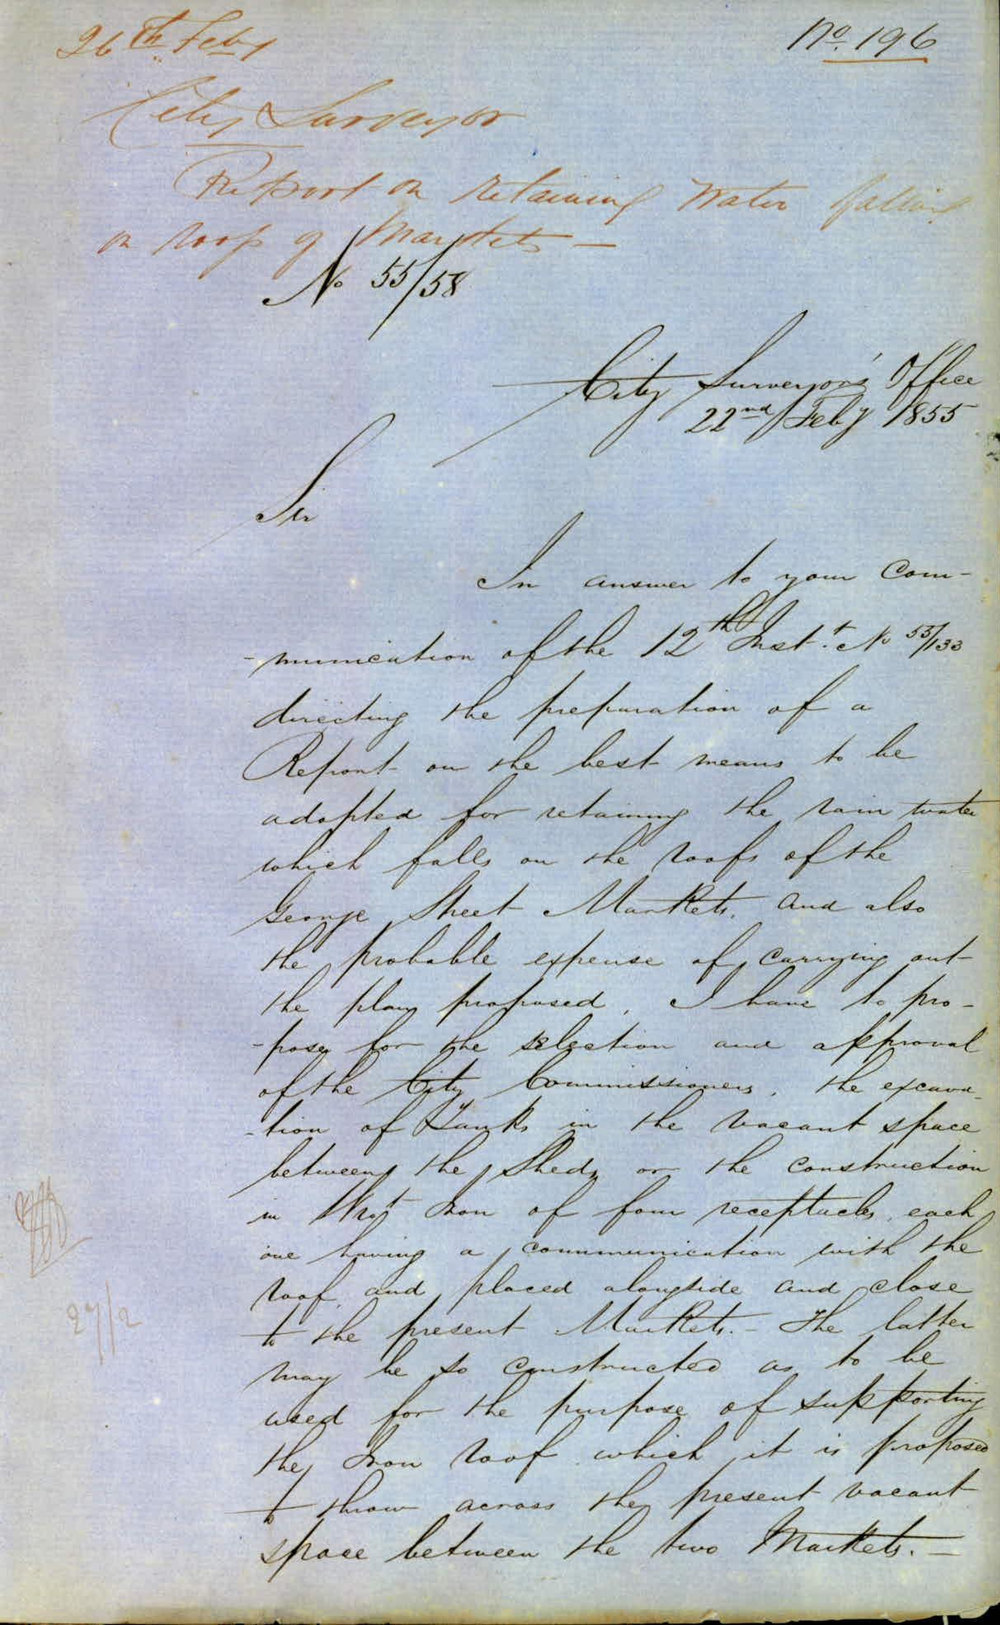 26th Feby
No. 196
City Surveyor
Report on retaining Water falling
on roof of Markets —
No 55/58
City Surveyor's Office
22nd Feby 1855
Sir
In answer to your Com-
-munication of the 12th Inst. No 55/133
directing the preparation of a
Report on the best means to be
adopted for retaining the rain water
which falls on the roofs of the
George Street Markets. and also
the probable expense of carrying out
the plan proposed, I have to pro-
-pose for the selection and approval
of the City Commissioners, the excava-
-tion of Tanks in the vacant space
between the Sheds or the construction
in Wrot Iron of four receptacles, each
one having a communication with the
roof, and placed alongside and close
to the present Markets. – The latter
may be so constructed as to be
used for the purpose of supporting
the Iron roof which it is proposed
to throw across the present vacant
space between the two Markets. —
27/2